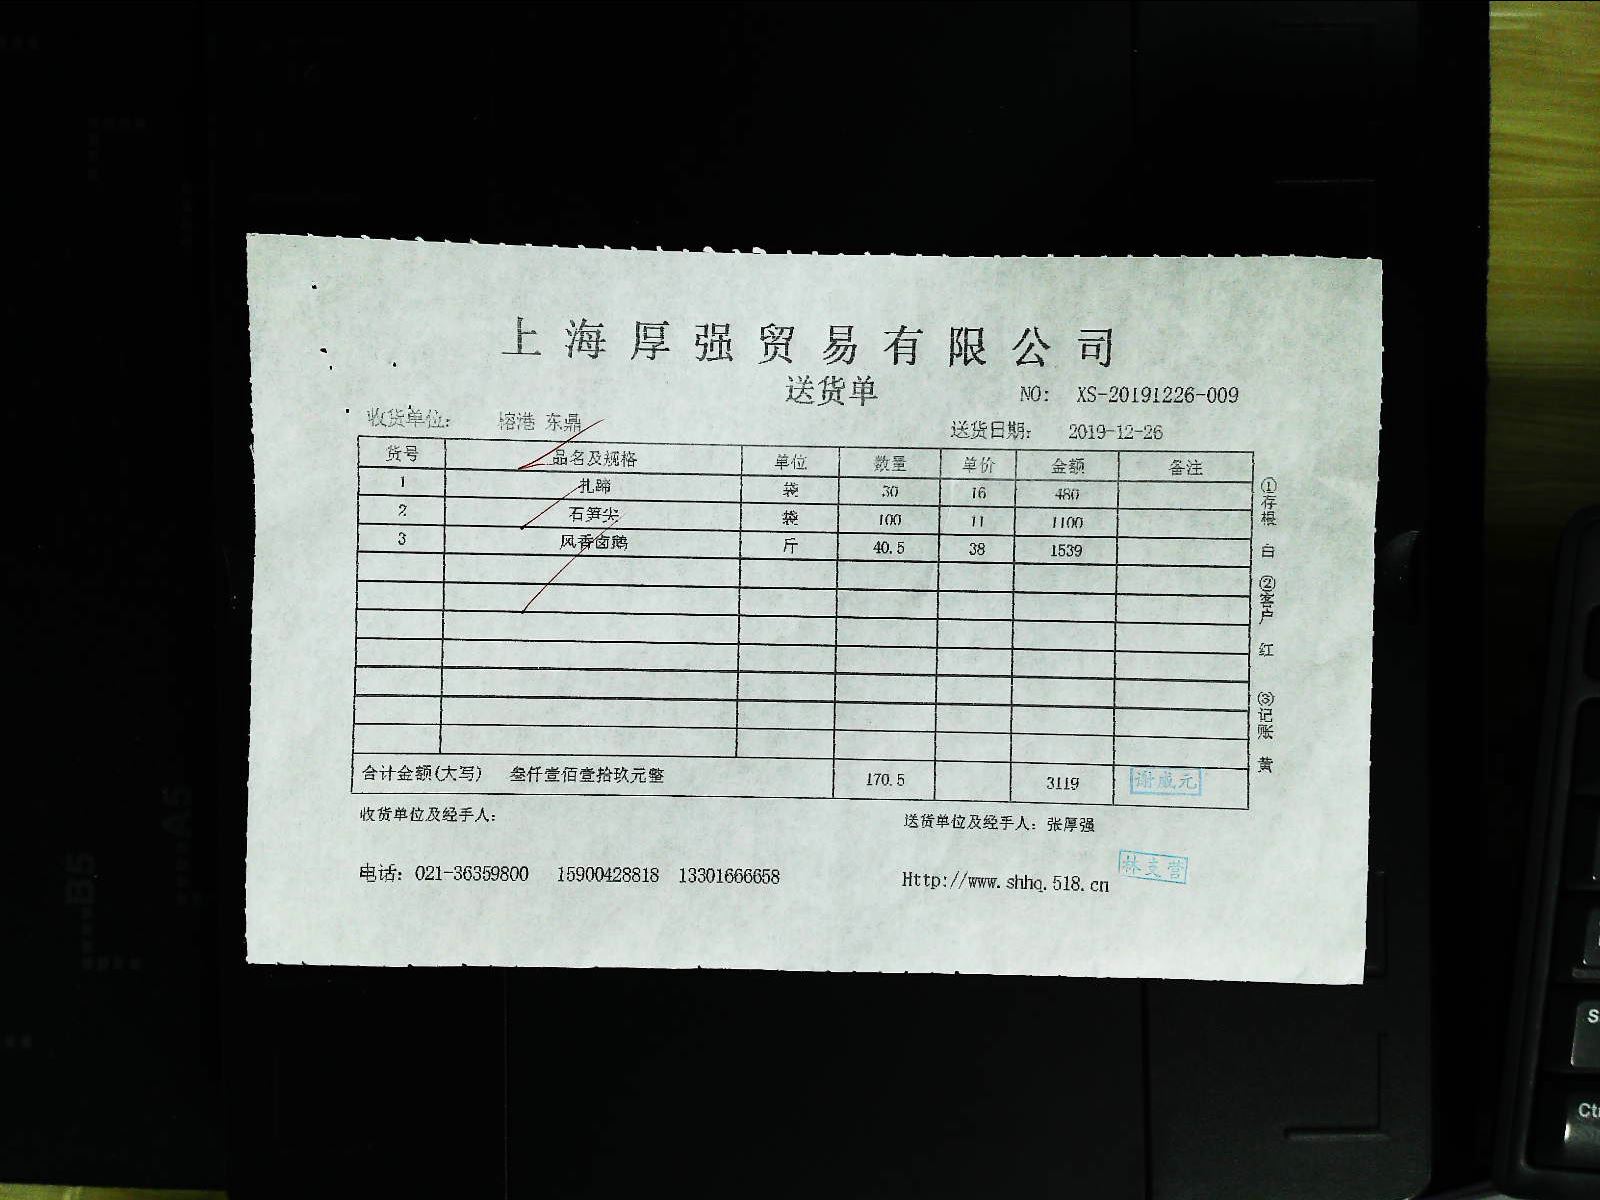 上海厚强贸易有限公司
送货单
NO: XS-20191226-009
收货单位: 榕港 东鼎
送货日期: 2019-12-26
货号 品名及规格 单位 数量 单价 金额 备注
1 扎蹄 袋 30 16 480
2 石笋尖 袋 100 11 1100
3 风香卤鹅 斤 40.5 38 1539
合计金额(大写) 叁仟壹佰壹拾玖元整 170.5 3119
谢成元
收货单位及经手人:
送货单位及经手人: 张厚强
电话: 021-36359800 15900428818 13301666658
Http://www.shhq.518.cn
林支营
①存根 白 ②客户 红 ③记账 黄
B5
A5
Ctr